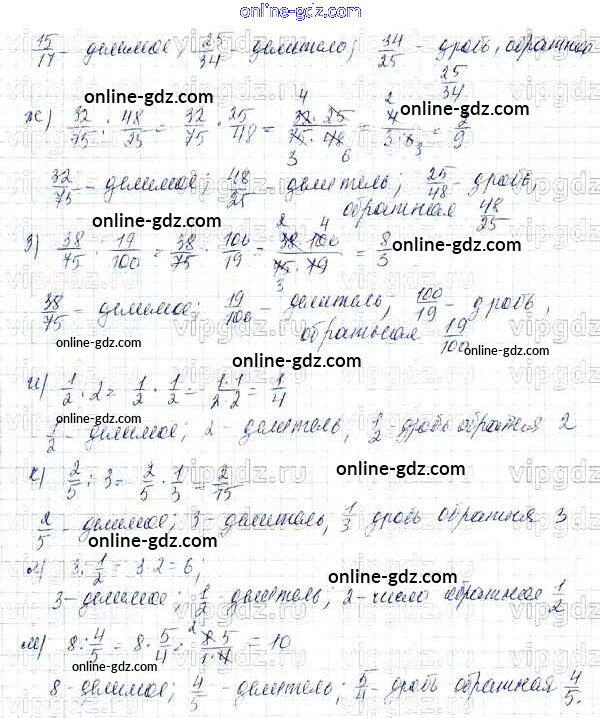 online-gdz.com
15/17 - делимое; 25/34 - делитель; 34/25 - дробь, обратная 25/34
online-gdz.com
ж) 32/75 : 48/25 = 32/75 · 25/48 = 32·25/75·48 = 4/3·6 = 2/9
online-gdz.com
32/75 - делимое; 48/25 - делитель; 25/48 - дробь, обратная 48/25
online-gdz.com
з) 38/75 : 19/100 = 38/75 · 100/19 = 38·100/75·19 = 8/3
online-gdz.com
38/75 - делимое; 19/100 - делитель; 100/19 - дробь, обратная 19/100
online-gdz.com
online-gdz.com
и) 1/2 : 2 = 1/2 · 1/2 = 1·1/2·2 = 1/4
online-gdz.com
1/2 - делимое; 2 - делитель, 1/2 - дробь обратная 2
online-gdz.com
к) 2/5 : 3 = 2/5 · 1/3 = 2/15
2/5 - делимое; 3 - делитель, 1/3 дробь обратная 3
online-gdz.com
л) 3 : 1/2 = 3·2 = 6;
online-gdz.com
3 - делимое; 1/2 - делитель; 2 - число обратное 1/2
online-gdz.com
м) 8 : 4/5 = 8 · 5/4 = 8·5/1·4 = 10
online-gdz.com
8 - делимое; 4/5 - делитель; 5/4 - дробь обратная 4/5.
online-gdz.com